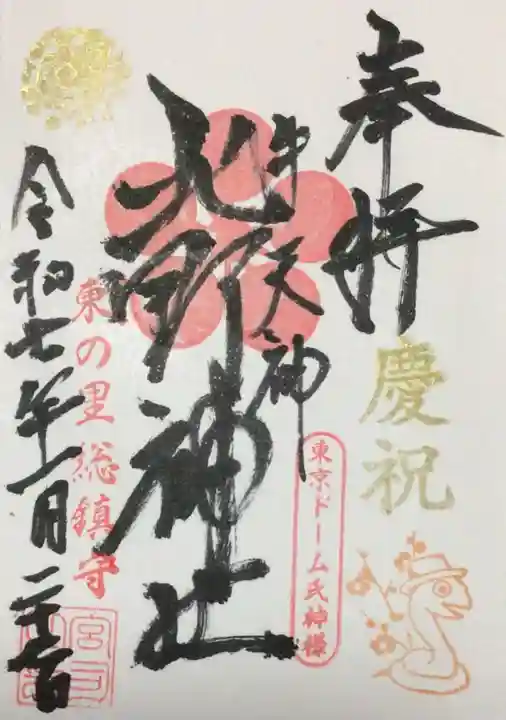 奉拝
慶祝
牛天神
東京ドーム氏神様
北野神社
東の里総鎮守
令和七年一月二十二日